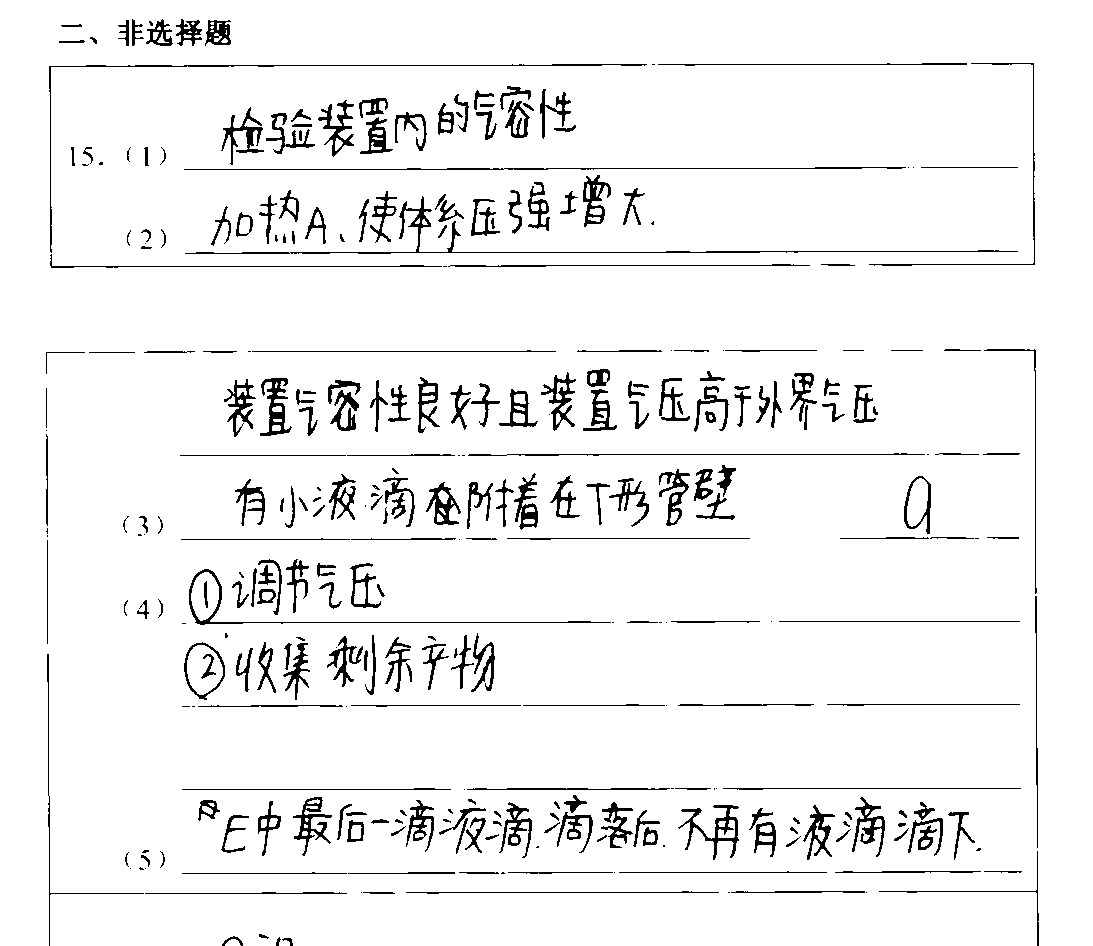 二、非选择题
15.（1） 检验装置内的气密性
（2） 加热A、使体系压强增大.
装置气密性良好且装置气压高于外界气压
（3） 有小液滴附着在T形管壁 a
（4） ①调节气压
②收集剩余产物
（5） E中最后一滴液滴.滴落后.不再有液滴滴下.